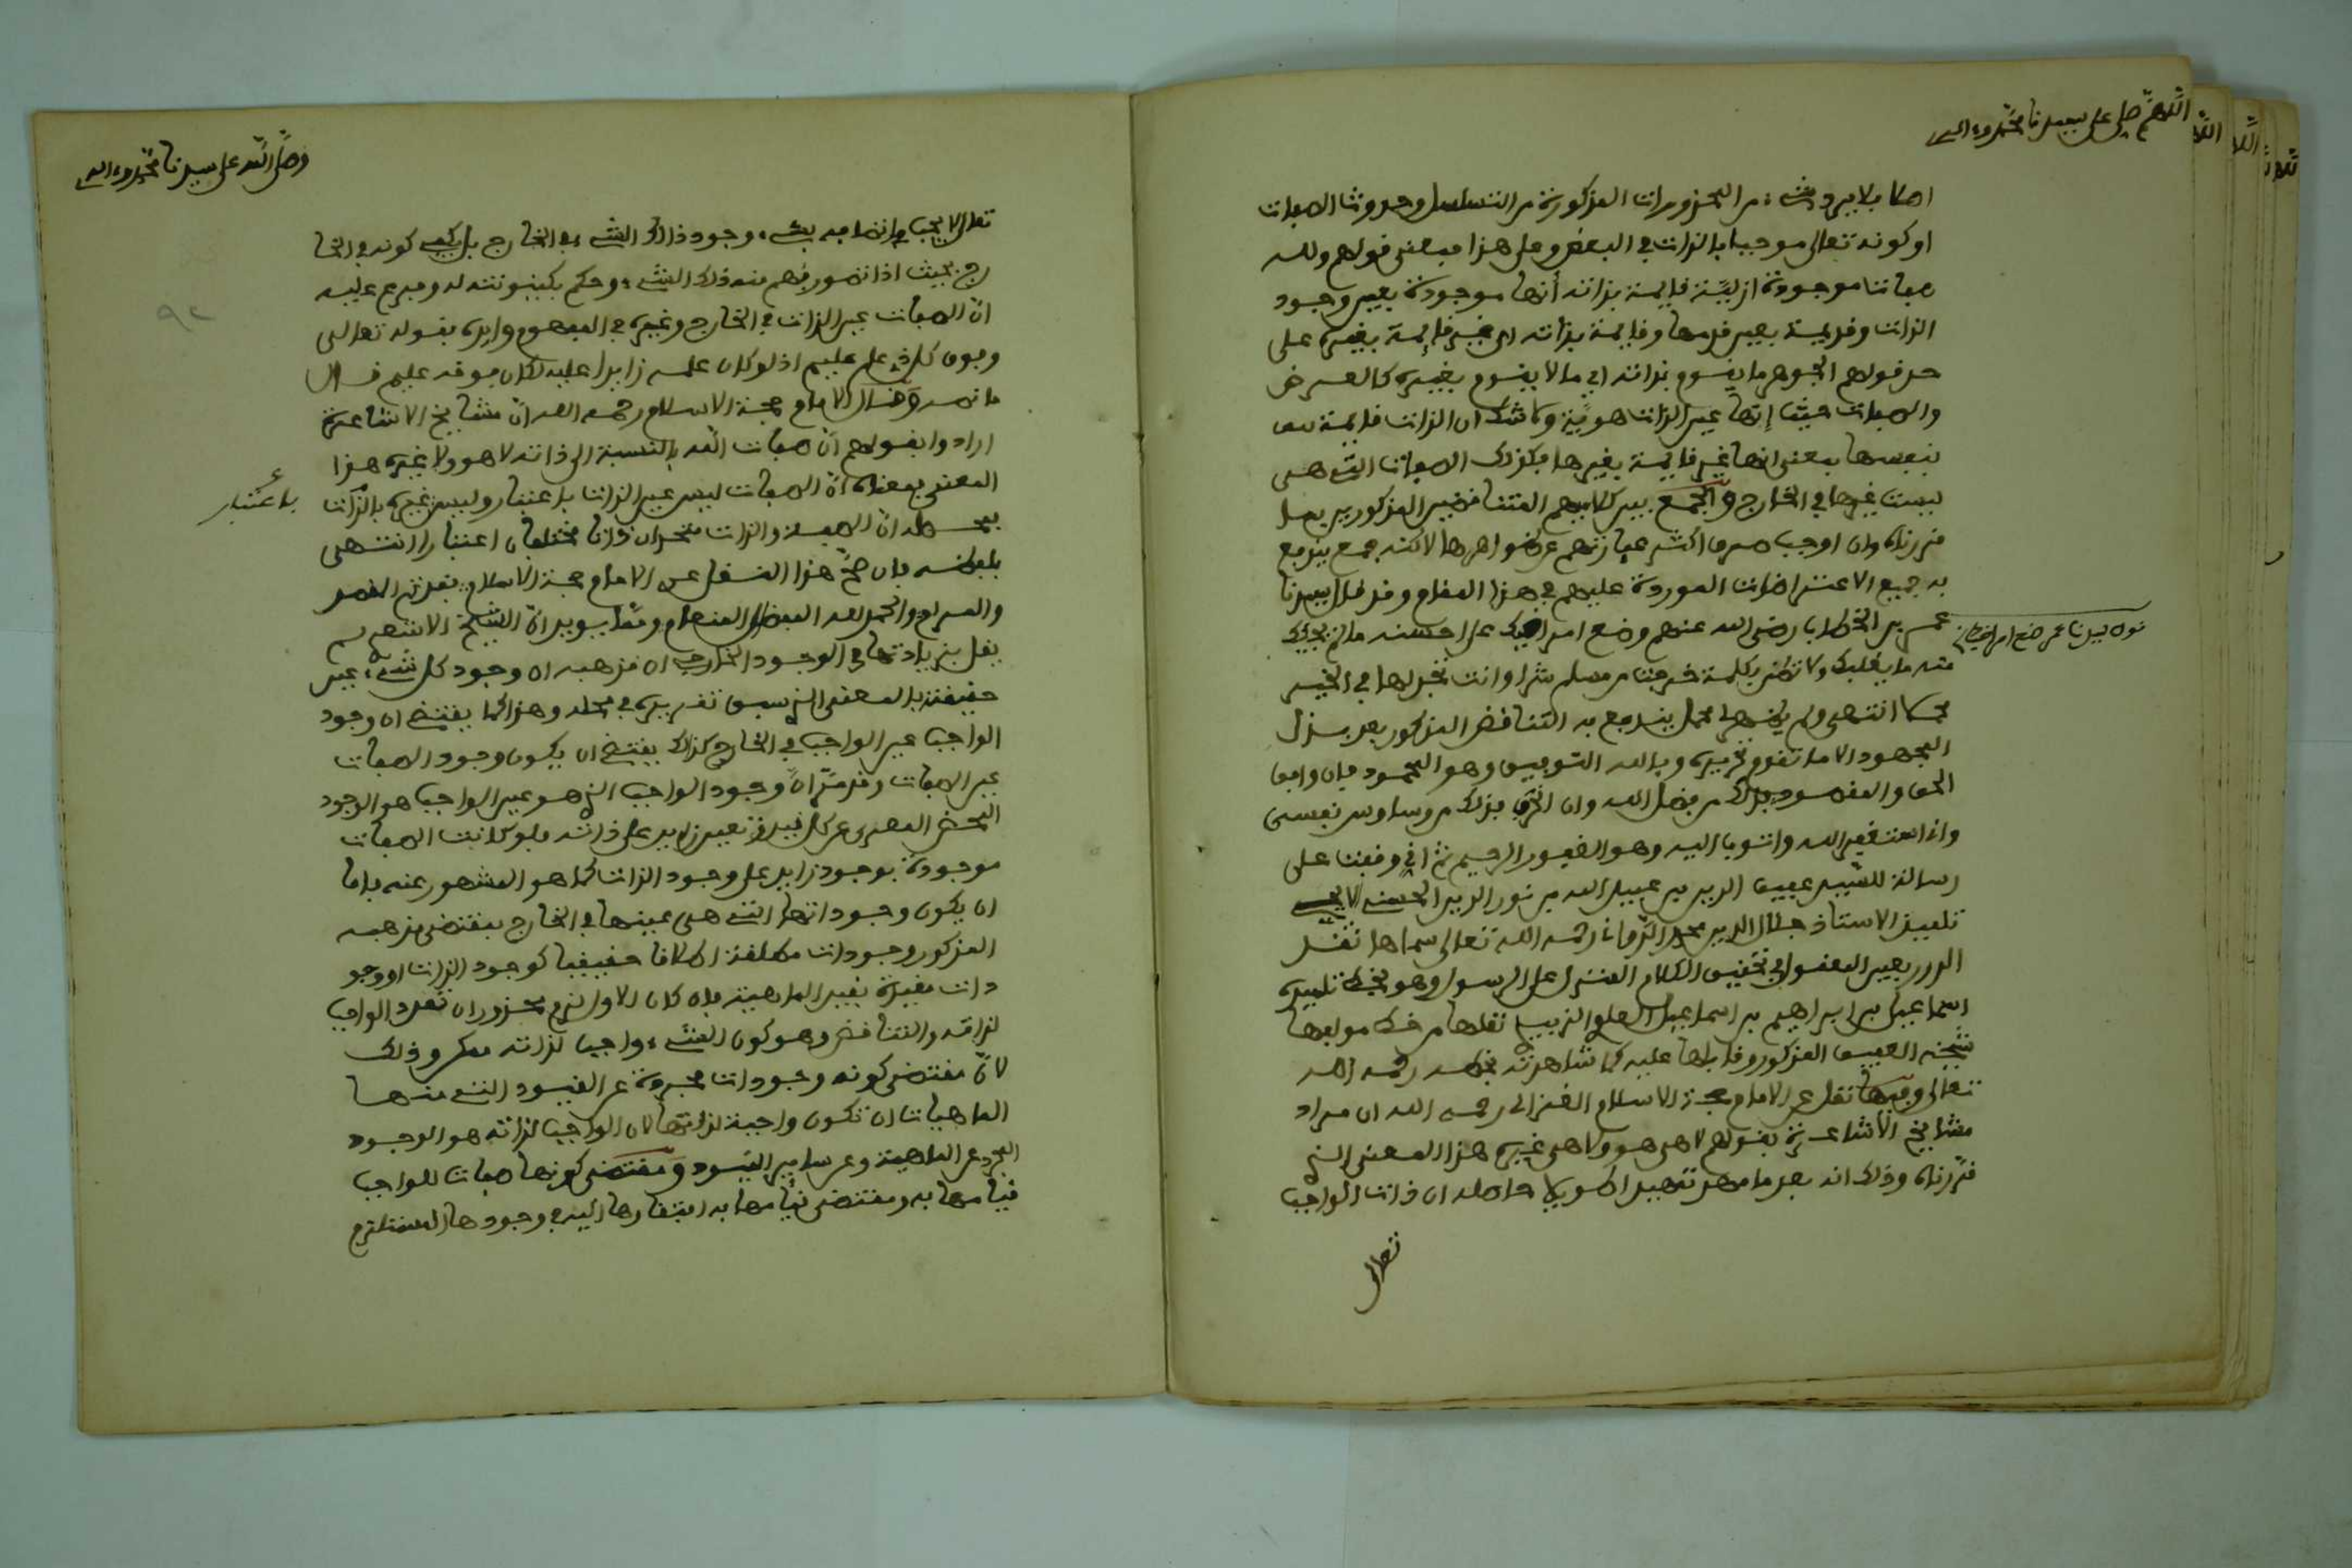 اللهم صل على سيدنا محمد وءاله
اصلا فلا يرد شيء من المحذورات المذكورة من التسلسل وحدوث الصفات
او كونه تعالى موجبا بالذات في البعض وعلى هذا فمعنى قولهم ولله
صفات موجودة ازلية قايمة بذاته أنها موجودة بعين وجود
الذات وقديمة بعين قدمها وقايمة بذاته اي غير قايمة بغيره على
حد قولهم الجوهر ما يقوم بذاته اي ما لا يقوم بغيره كالعرض
والصفات حيث إنها عين الذات هوية ولا شك ان الذات قايمة
بنفسها بمعنى انها غير قايمة بغيرها فكذلك الصفات التي هي
ليست غيرها في الخارج والجمع بين كلاميهم المتناقضين المذكورين بما
قررناه وان اوجب صرف اكثر عباراتهم عن ظواهرها لاكنه جمع يندفع
به جميع الاعتراضات الموردة عليهم في هذا المقام وقد قال سيدنا
عمر بن الخطاب رضي الله عنهم وضع امر اخيك على احسنه ما لم يجيك
منه ما يغلبك ولا تظن بكلمة خرجت من مسلم شرا وانت تجد لها في الخير
محملا انتهى ولم يظهر لي محمل يندفع به التناقض المذكور بعد بذل
المجهود الا ما تقدم تحريره وبالله التوفيق وهو المحمود فان وافق
الحق والمقصود فذلك من فضل الله وان اخرى فذلك من وساوس نفسي
وانا استغفر الله واتوب اليه وهو الغفور الرحيم ثم اني وقفت على
رسالة للسيد عفيف الدين بن عبيد الله بن نور الدين الحسني الايجي
تلميذ الاستاذ جلال الدين محمد الدواني رحمه الله تعالى سماها نثر
الدرر بعين المقبول في تحقيق الكلام المنزل على الرسول وهو بخط تلميذه
اسماعيل بن ابراهيم بن اسماعيل العلوي الزبيدي نقلها من خط مولفها
شيخه العفيف المذكور وقابلها عليه كما شاهدته بخطه رحمه الله
تعالى وفيها نقل عن الامام حجة الاسلام الغزالي رحمه الله ان مراد
مشايخ الاشاعرة بقولهم لا هي هو ولا هي غيره هذا المعنى الذي
قررناه وذلك انه بعد ما مهد تمهيدا طويلا حاصله ان ذات الواجب
تعالى
قوله سيدنا عمر ضع امر اخيك
وصلى الله على سيدنا محمد وءاله
تعالى لا يجب في اتصافه بشيء وجود ذالك الشيء في الخارج بل يكفي كونه في الخا
رج بحيث اذا تصور فهم منه ذلك الشيء وحكم بكينونته له وفرع عليه
ان الصفات عين الذات في الخارج وغيره في المفهوم وايده بقوله تعالى
وفوق كل ذي علم عليم اذ لو كان علمه زايدا عليه لكان فوقه عليم قال
ما نصه وقال الامام حجة الاسلام رحمه الله ان مشايخ الاشاعرة
ارادوا بقولهم ان صفات الله بالنسبة الى ذاته لا هو ولا غيره هذا
المعنى بمعنى ان الصفات ليس عين الذات باعتبار وليس غيره بالذات
فحاصله ان الصفة والذات متحدان ذاتا مختلفان اعتبارا انتهى
بلفظه فان صح هذا النقل عن الامام حجة الاسلام فقد تم القصد
والمرام والحمد لله المفضل المنعام ومما يويد ان الشيخ الاشعري لم
يقل بزيادتها في الوجود الخارجي ان مذهبه ان وجود كل شيء عين
حقيقته بالمعنى الذي سبق تقريره في محله وهذا كما يقتضي ان وجود
الواجب عين الواجب في الخارج كذلك يقتضي ان يكون وجود الصفات
عين الصفات وقد مر ان وجود الواجب الذي هو عين الواجب هو الوجود
المحض المعرى عن كل قيد وتعين زايد على ذاته فلو كانت الصفات
موجودة بوجود زايد على وجود الذات كما هو المشهور عنه فاما
ان يكون وجوداتها التي هي عينها في الخارج بمقتضى مذهبه
المذكور وجودات مطلقة اطلاقا حقيقيا كوجود الذات او وجو
دات مقيدة بقيد الماهية فان كان الاول لزم محذوران تعدد الواجب
لذاته والتناقض وهو كون الشيء واجبا لذاته ممكن وذلك
لان مقتضى كونه وجودات مجردة عن القيود التي منها
الماهيات ان تكون واجبة لذاتها لان الواجب لذاته هو الوجود
المجرد عن الماهية وعن ساير القيود ومقتضى كونها صفات للواجب
قيامها به ومقتضى قيامها به افتقارها اليه في وجودها المستلزم
باعتبار
٩٢